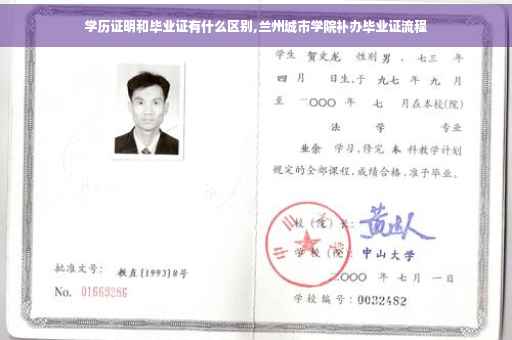 学历证明和毕业证有什么区别,兰州城市学院补办毕业证流程
学生 贺文龙 性别 男 、七三 年
四 月 日生,于 九七 年 九 月
至 二〇〇〇 年 七 月在本校(院)
法 学 专业
业余 学习,修完 本 科教学计划
规定的全部课程,成绩合格,准予毕业。
校(院)长:
学校(院): 中山大学
二〇〇〇 年 七 月 一 日
批准文号: 教直[1993]8号
No. 01669286
学校编号: 0032482